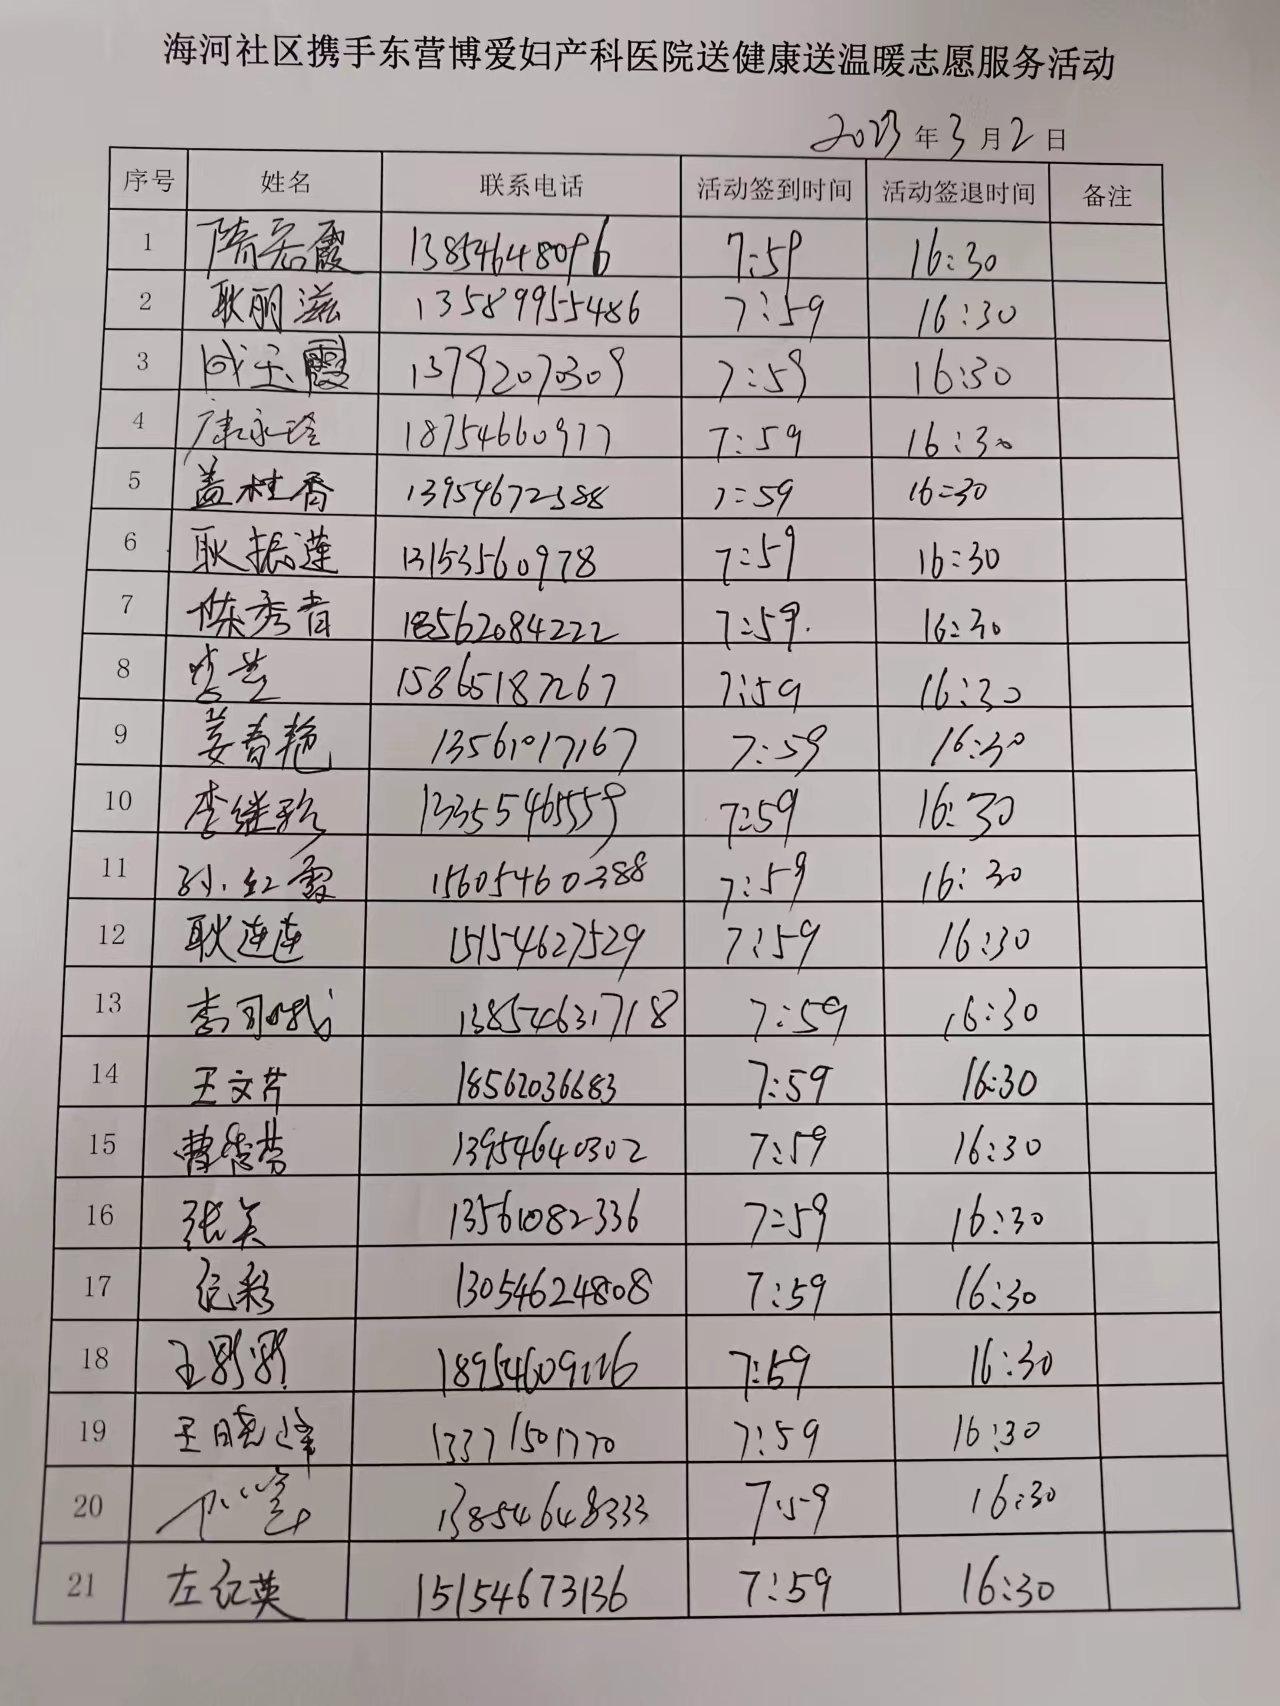 海河社区携手东营博爱妇产科医院送健康送温暖志愿服务活动
2023年3月2日
序号 姓名 联系电话 活动签到时间 活动签退时间 备注
1 隋宏霞 13854648096 7:59 16:30
2 耿丽滋 13589955486 7:59 16:30
3 成玉霞 13792070309 7:59 16:30
4 康永玲 18754660977 7:59 16:30
5 盖桂香 13954672388 7:59 16:30
6 耿振莲 13153560978 7:59 16:30
7 陈秀青 18562084222 7:59 16:30
8 15865187267 7:59 16:30
9 姜春艳 13561017167 7:59 16:30
10 李继珍 13355465559 7:59 16:30
11 孙红霞 15605460388 7:59 16:30
12 耿连连 15154627529 7:59 16:30
13 李 13854631718 7:59 16:30
14 王文芹 18562036683 7:59 16:30
15 曹秀芳 13954640302 7:59 16:30
16 张美 13561082336 7:59 16:30
17 纪彩 13054624808 7:59 16:30
18 王 7:59 16:30
19 王晓峰 13371501770 7:59 16:30
20 13854648333 7:59 16:30
21 左红英 15154673136 7:59 16:30